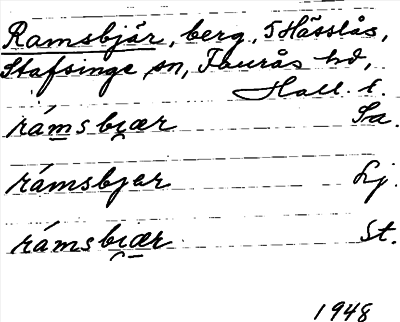 Ramsbjär, berg, S Hässlås,
Stafsinge sn, Faurås hd,
Hall. l.
rámsbi̯ær Sa.
rámsbjer Lj.
rámsbi̯ær St.
1948